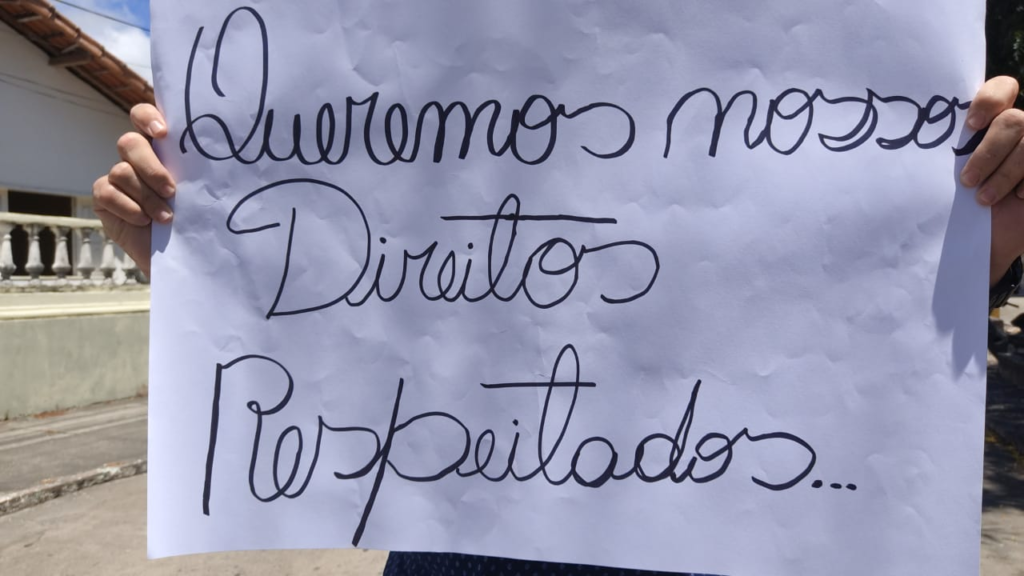 Queremos nossos
Direitos
Respeitados...